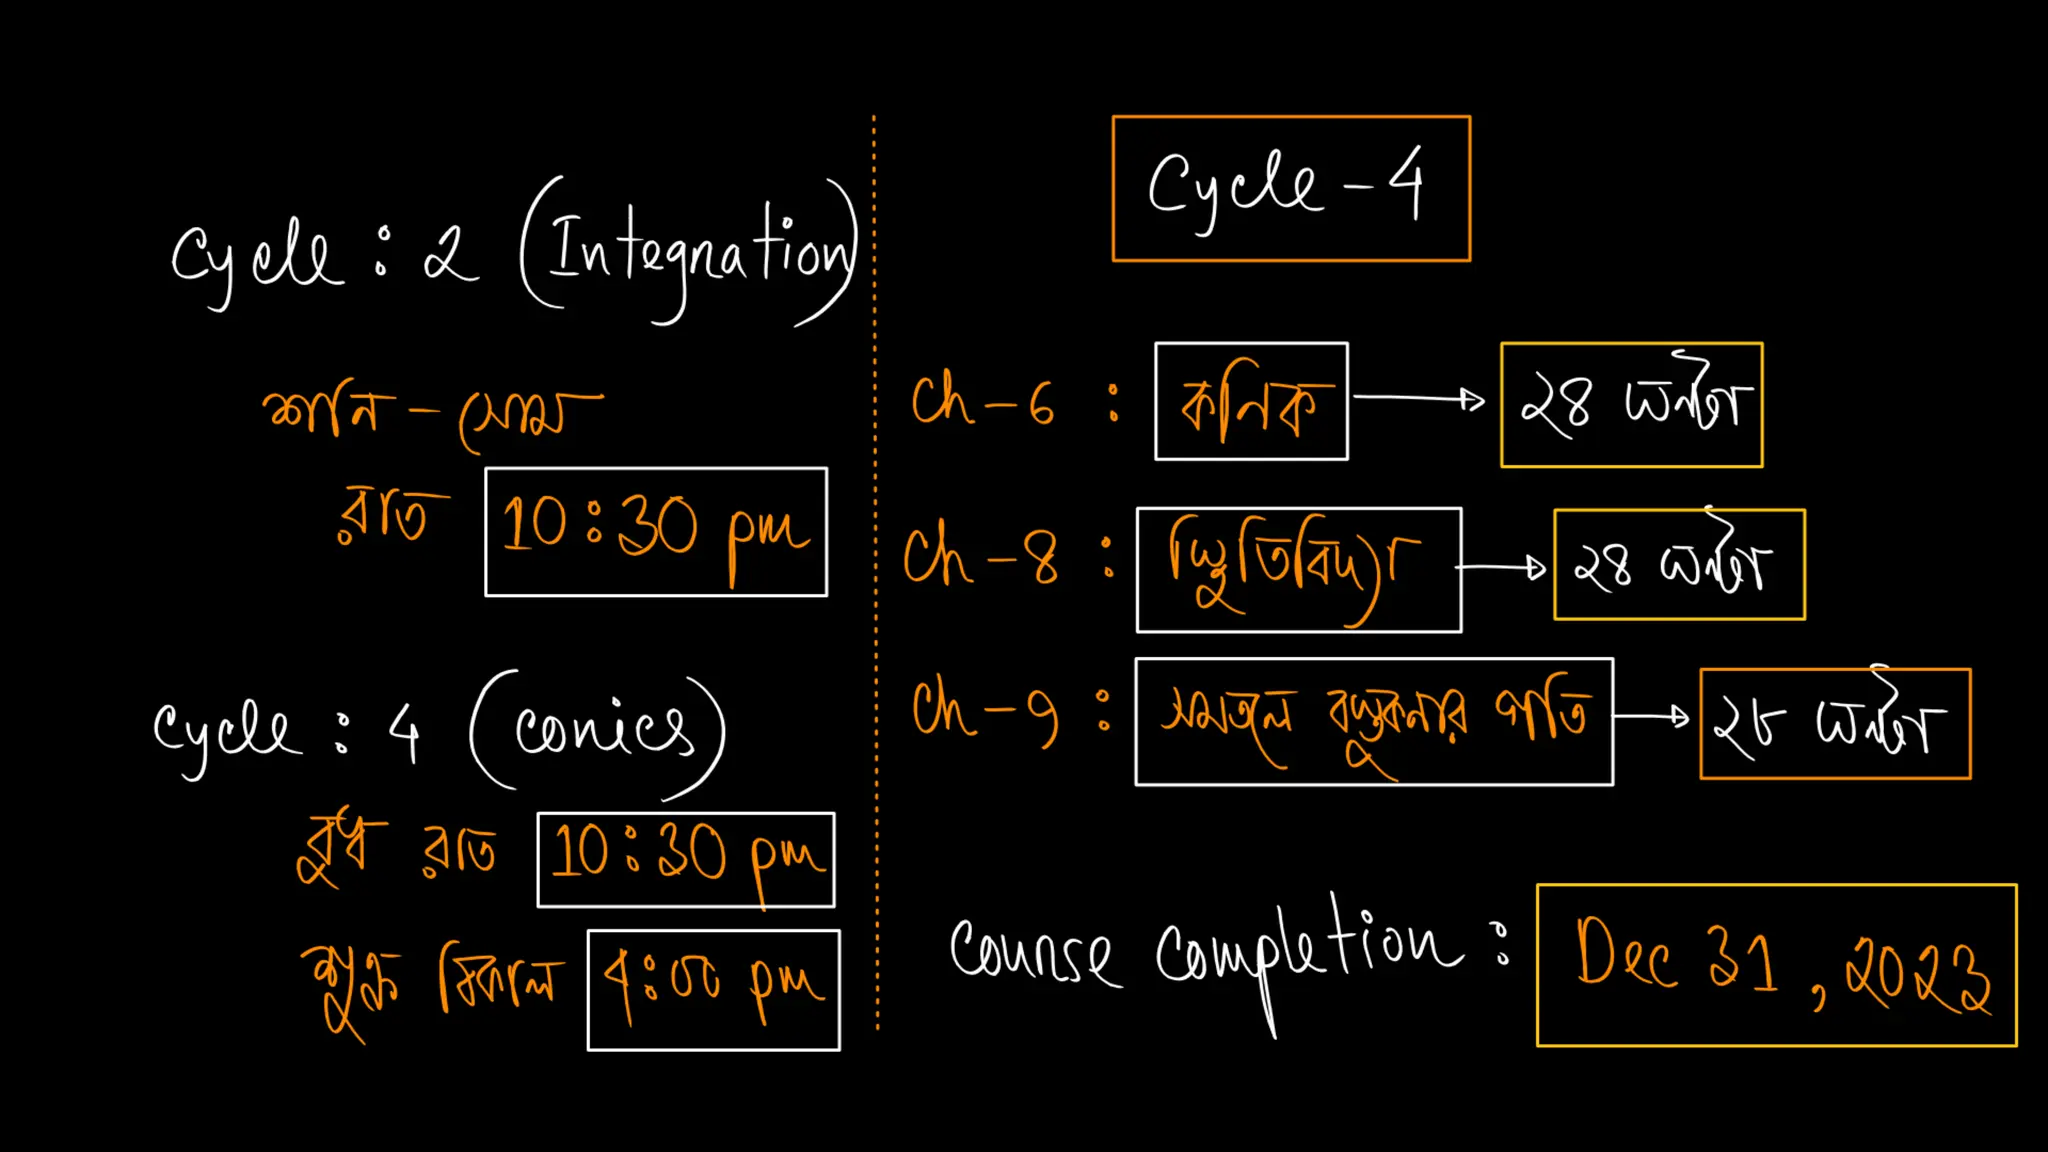 Cycle : 2 (Integration)
শনি - সোম
রাত 10:30 pm
Cycle : 4 (Conics)
বুধ রাত 10:30 pm
শুক্র বিকাল 4:00 pm
Cycle - 4
Ch - 6 : কনিক → ২৪ ঘন্টা
Ch - 8 : স্থিতিবিদ্যা → ২৪ ঘন্টা
Ch - 9 : সমতলে বস্তুকনার গতি → ২৮ ঘন্টা
Course Completion : Dec 31, 2023